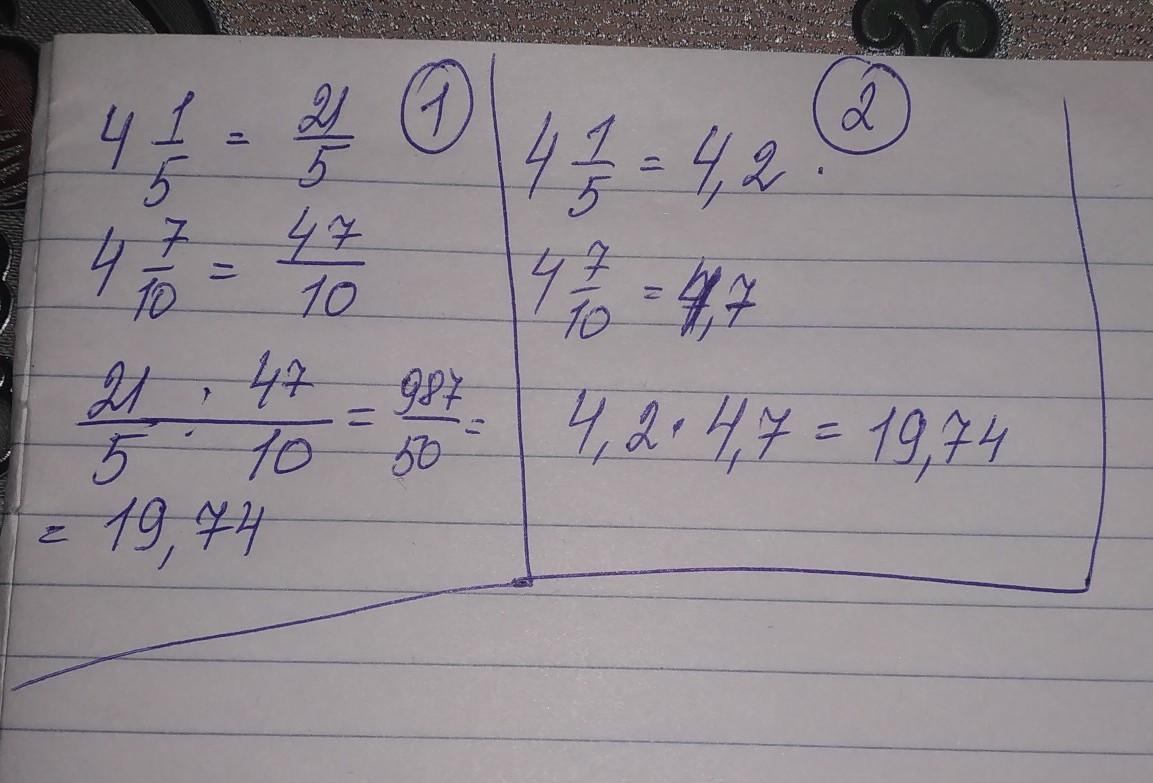 1
4 1/5 = 21/5
4 7/10 = 47/10
21/5 · 47/10 = 987/50 =
= 19,74
2
4 1/5 = 4,2
4 7/10 = 4,7
4,2 · 4,7 = 19,74